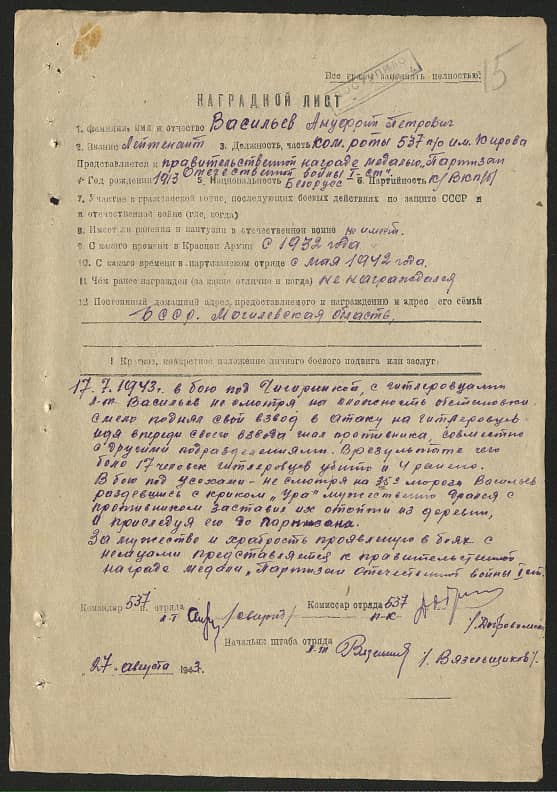 15
Все графы заполнять полностью!
ПОСТУПИЛО
НАГРАДНОЙ ЛИСТ
1. Фамилия, имя и отчество Васильев Ануфрий Петрович
2. Звание Лейтенант 3. Должность, часть ком. роты 537 п/о им. Кирова
Представляется к правительственной награде медалью „Партизан
Отечественной войны I-ст".
4 Год рождения 1913 5. Национальность Белорус 6. Партийность к/ВКП/б/
7. Участие в гражданской войне, последующих боевых действиях по защите СССР и
в отечественной войне (где, когда)
8. Имеет ли ранения и контузии в отечественной войне не имеет.
9. С какого времени в Красной Армии с 1932 года
10. С какого времени в партизанском отряде с мая 1942 года.
11 Чем ранее награжден (за какие отличия и когда) не награждался
12 Постоянный домашний адрес, предоставляемого к награждению и адрес его семьи
БССР. Могилевская область,
I Краткое, конкретное изложение личного боевого подвига или заслуг:
17.7.1943г. в бою под Чигиринкой, с гитлеровцами
л-т Васильев не смотря на сложность обстановки
смело поднял свой взвод в атаку на гитлеровцев-
идя впереди своего взвода гнал противника, совместно
с другими подразделениями. В результате чего
было 17 человек гитлеровцев убито и 4 ранено.
В бою под Усохами- не смотря на 35° мороза Васильев
раздевшись с криком „Ура" мужественно дрался с
противником заставив их отойти из деревни,
и преследуя его до
За мужество и храбрость проявленую в боях с
немцами представляется к правительственной
награде медали „Партизан Отечественной войны I ст.
Командир 537 п. отряда Комиссар отряда 537
л-т п-к
Начальник штаба отряда
л-т /. Вязельщиков/.
„27" августа 1943.